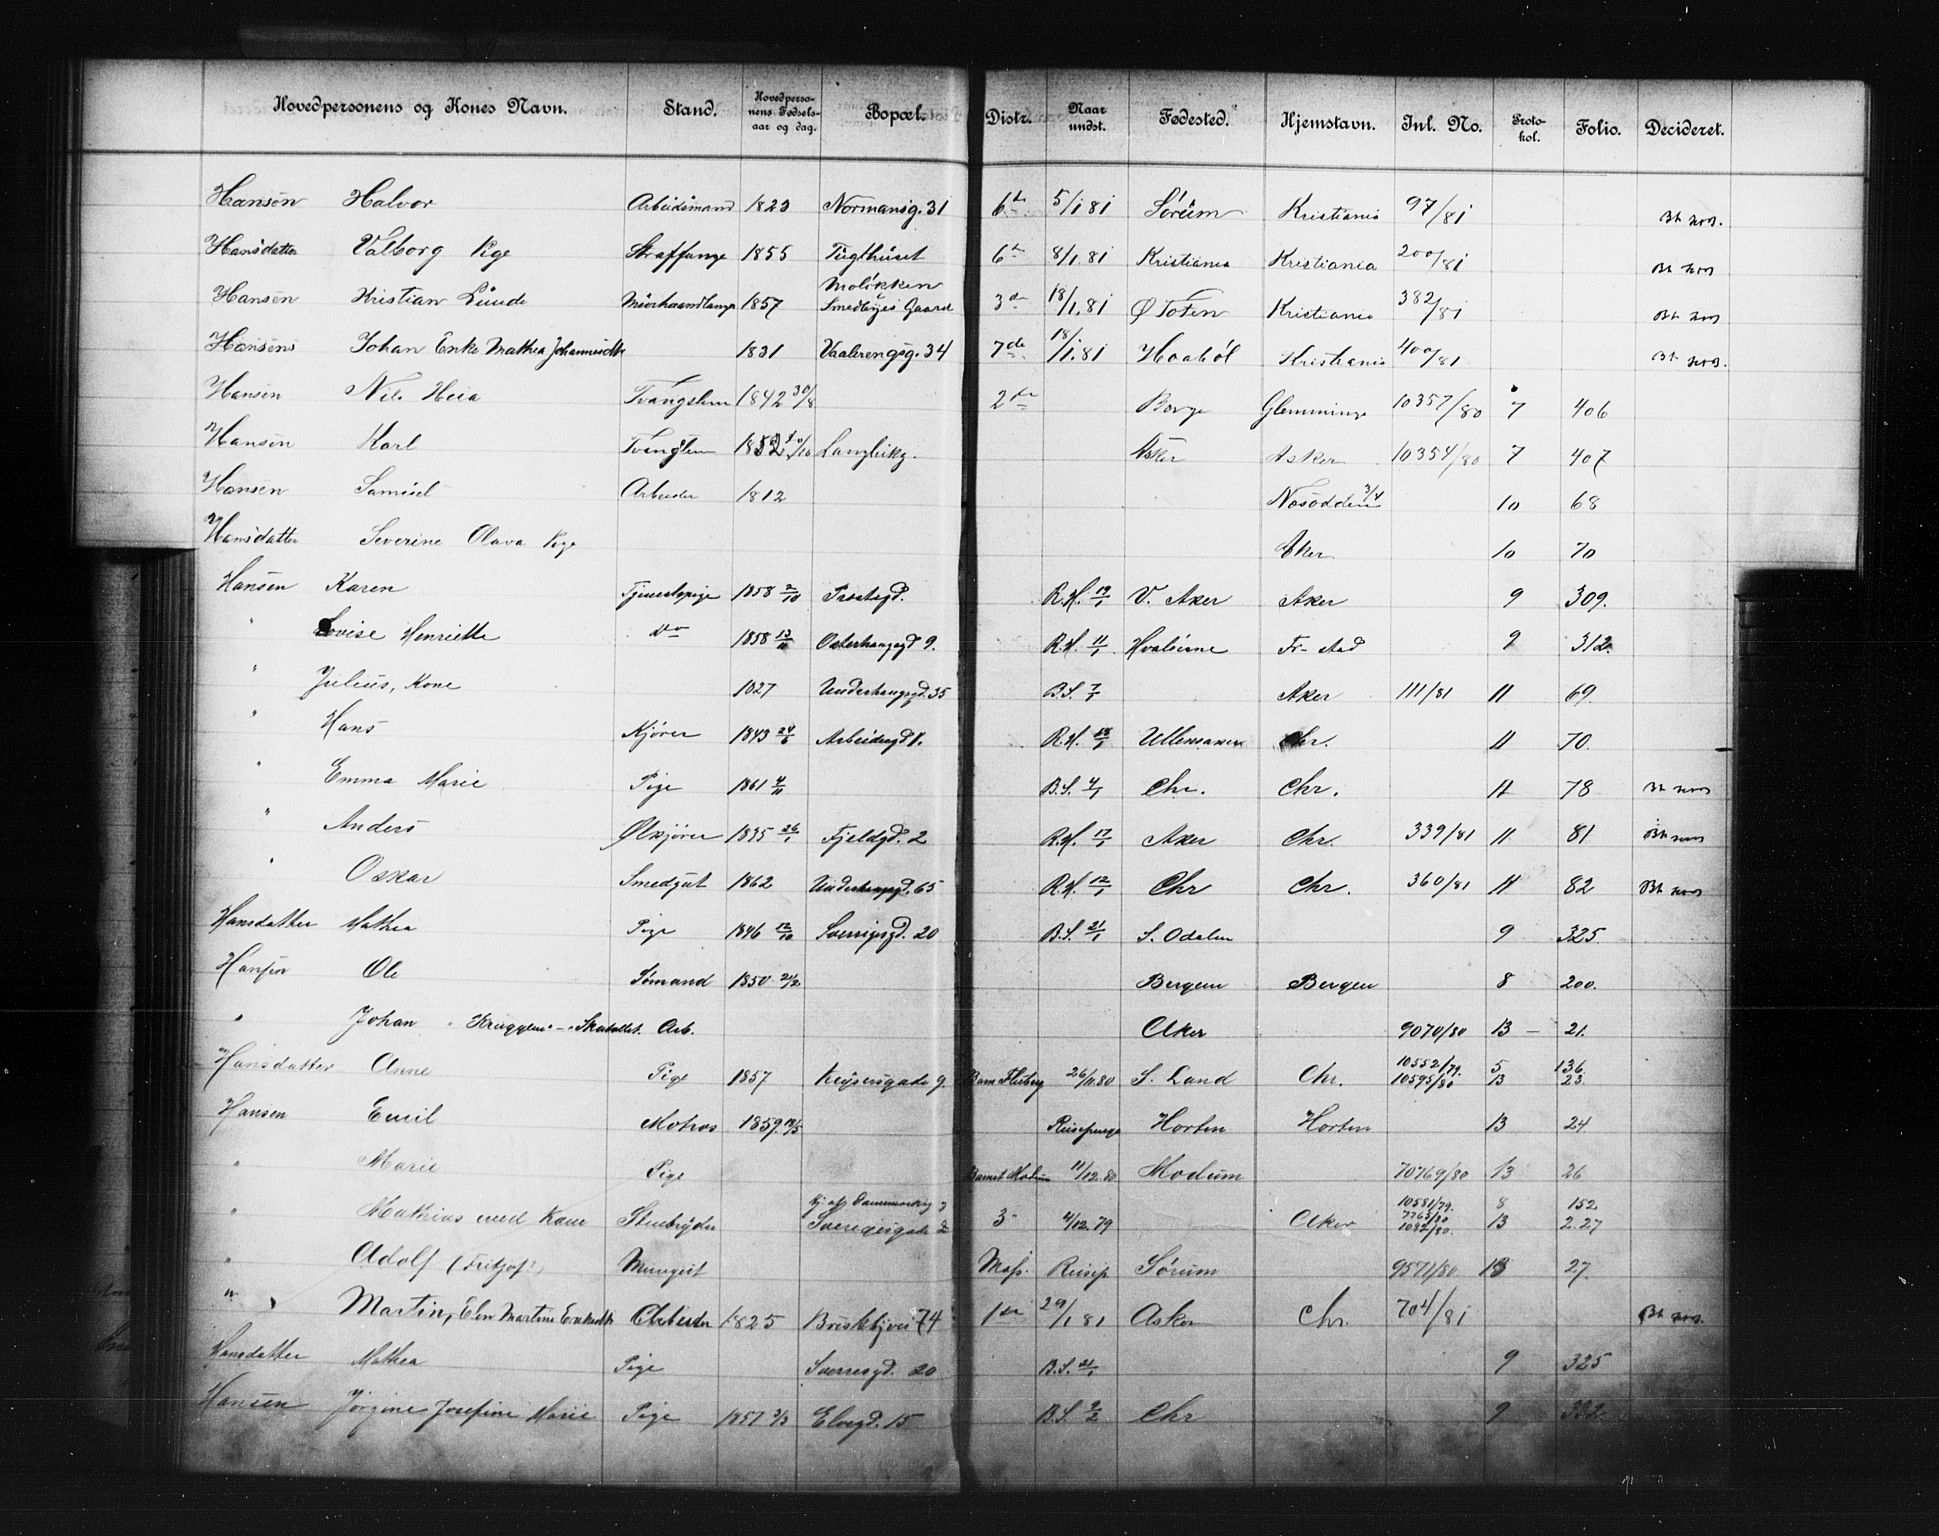 Hovedpersonens og Kones Navn. Stand. Hovedpersonens Fødselsaar og dag. Bopæl. Distr. Naar undst. Fødested. Hjemstavn. Inl. No. Protokol. Folio. Decideret.
Hansen Halvor Arbeidsmand 1823 Normansg. 31 6te 5/1 81 Sørum Kristiania 97/81
Hansdatter Valborg Pige Straffange 1855 Tugthuset 6te 8/1.81 Kristiania Kristiania 200/81
Hansen Kristian Lunde 1857 Moløkken Smedbyes Gaard 3de 18/1.81 Ø Toten Kristiania 382/81
Hansens Johan Enke Mathea Johannesdtr 1831 Vaalerengsg. 34 7de 18/1.81 Haabøl Kristiania 400/81
Hansen Nils Heia Tvangslem 1842 30/8 2den Borge Glemminge 10357/80 7 406
Hansen Karl Tvangslem Langlikg. Asker Asker 10354/80 7 407
Hansen Samuel Arbeider 1812 Nesodden 3/4 10 68
Hansdatter Severine Olava Pige Aker 10 70
Hansen Karen Tjenestepige 1858 2/10 R.H. 19/1 V. Aker Aker 9 309.
" Lovise Henriette do 1858 13/11 Osterhausgd 9. R.H. 11/1 Hvaløerne Fr-stad 9 312.
" Julius, Kone 1827 Underhaugsgd. 35 B.S. 7/1 Aker 111/81 11 69.
" Hans Kjører 1843 24/6 Arbeidergd 1. R.H. 18/1 Ullensaker Chr. 11 70.
" Emma Marie Pige 1861 4/11 B.S. 4/1 Chr. Chr. 11 78
" Anders Ølkjører 1835 26/1 Fjeldgd. 2 R.H. 17/1 Aker Chr. 339/81 11 81
" Oskar Smedgut 1862 Underhaugsgd. 65 R.H. 12/1 Chr Chr. 360/81 11 82
Hansdatter Mathea Pige 1846 12/10 Sverrigsgd. 20 B.S. 21/1 S. Odalen 9 325.
Hansen Ole Sømand 1850 24/2 Bergen Bergen 8 200.
" Johan "Kruggen"-"Skatollet. Arb. Aker 9070/80 13 - 21.
Hansdatter Anne Pige 1857 Keysersgade 9. 26/11.80 S. Land Chr. 10552/79. 10595/80 5 13 136. 23.
Hansen Emil Matros 1859. 19/5 Reisepenge Horten Horten 13 24
" Marie Pige Barnet Modum 11/12.80 Modum 10769/80 13 26
" Mathias med Kone Stenbryder 3- 4/12.79 Aker 10581/79. 7765/80 1082/80. 8 13 152 2.27
" Adolf (Fritjof) Murergut Mass. Reisep. Sørum 9571/80 13 27.
" Martin, Elen Martine Eriksdtr Arbeider 1825 Briskebyvei 74 1ste 29/1 81 Asker Chr. 704/81
Hansdatter Mathea Pige Sverresgd. 20 B.S. 21/1 9 325
Hansen Jørgine Josefine Marie Pige 1857 3/3 Elvegd. 15 B.S. 2/2 Chr 9 332